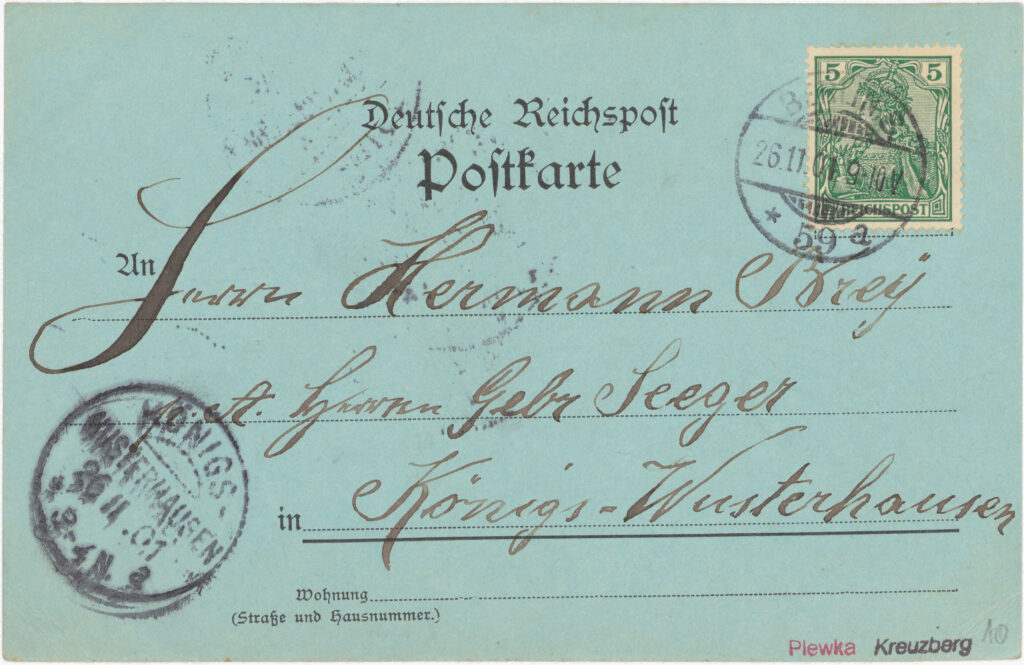 Deutsche Reichspost
Postkarte
5 5
REICHSPOST
BERLIN
26.11.01 9-10V
* 59 a
An Herrn Hermann Brey
Herren Gebr Seeger
in Königs-Wusterhausen
KÖNIGS-
WUSTERHAUSEN
26 11 01
* 3-4N. a
Wohnung
(Straße und Hausnummer.)
Plewka Kreuzberg
10